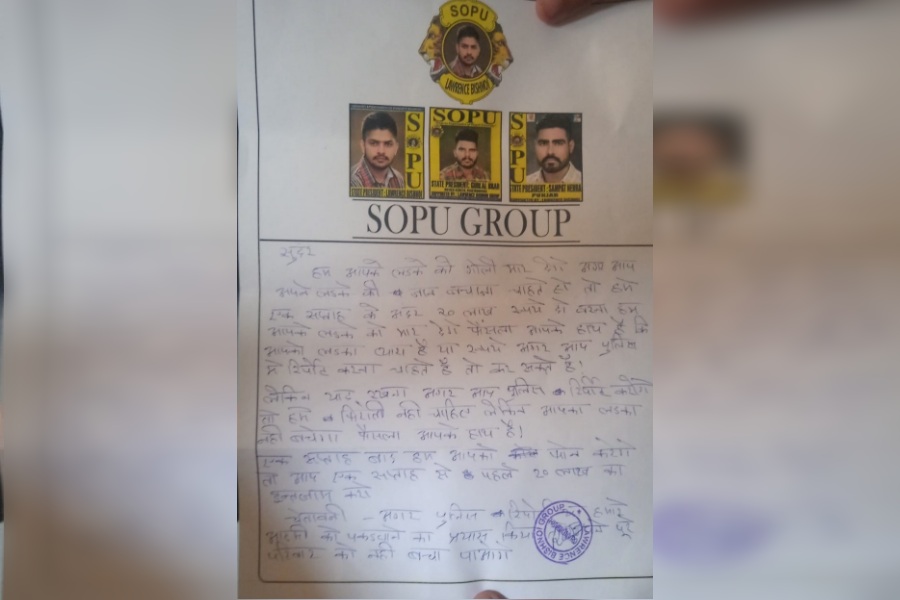 SOPU
LAWRENCE BISHNOI
SOPU
SOPU
SOPU
STATE PRESIDENT - LAWRENCE BISHNOI
STATE PRESIDENT
STATE PRESIDENT - SAMPAT NEHRA
PUNJAB
SOPU GROUP
सुन्दर
हम आपके लडके को गोली मार देगे अगर आप
अपने लडके की जान बचाना चाहते हो तो हमे
एक सप्ताह के अंदर २० लाख रुपये दो वरना हम
आपके लडके को मार देगे फैसला आपके हाथ है कि
आपको लडका प्यारा है या रुपये अगर आप पुलिस
मे रिपोर्ट करना चाहते है तो कर सकते है!
लेकिन याद रखना अगर आप पुलिस रिपोर्ट करोगे
तो हमे फिरौती नही चाहिए लेकिन आपका लडका
नही बचेगा फैसला आपके हाथ है!
एक सप्ताह बाद हम आपको फोन करेगे
तो आप एक सप्ताह से पहले २० लाख का
इन्तजाम करो
चेतावनी - अगर पुलिस हमारे
आदमी को पकडवाने का प्रयास किया पूरे
परिवार को नही बचा पाओगे
LAWRENCE BISHNOI GROUP